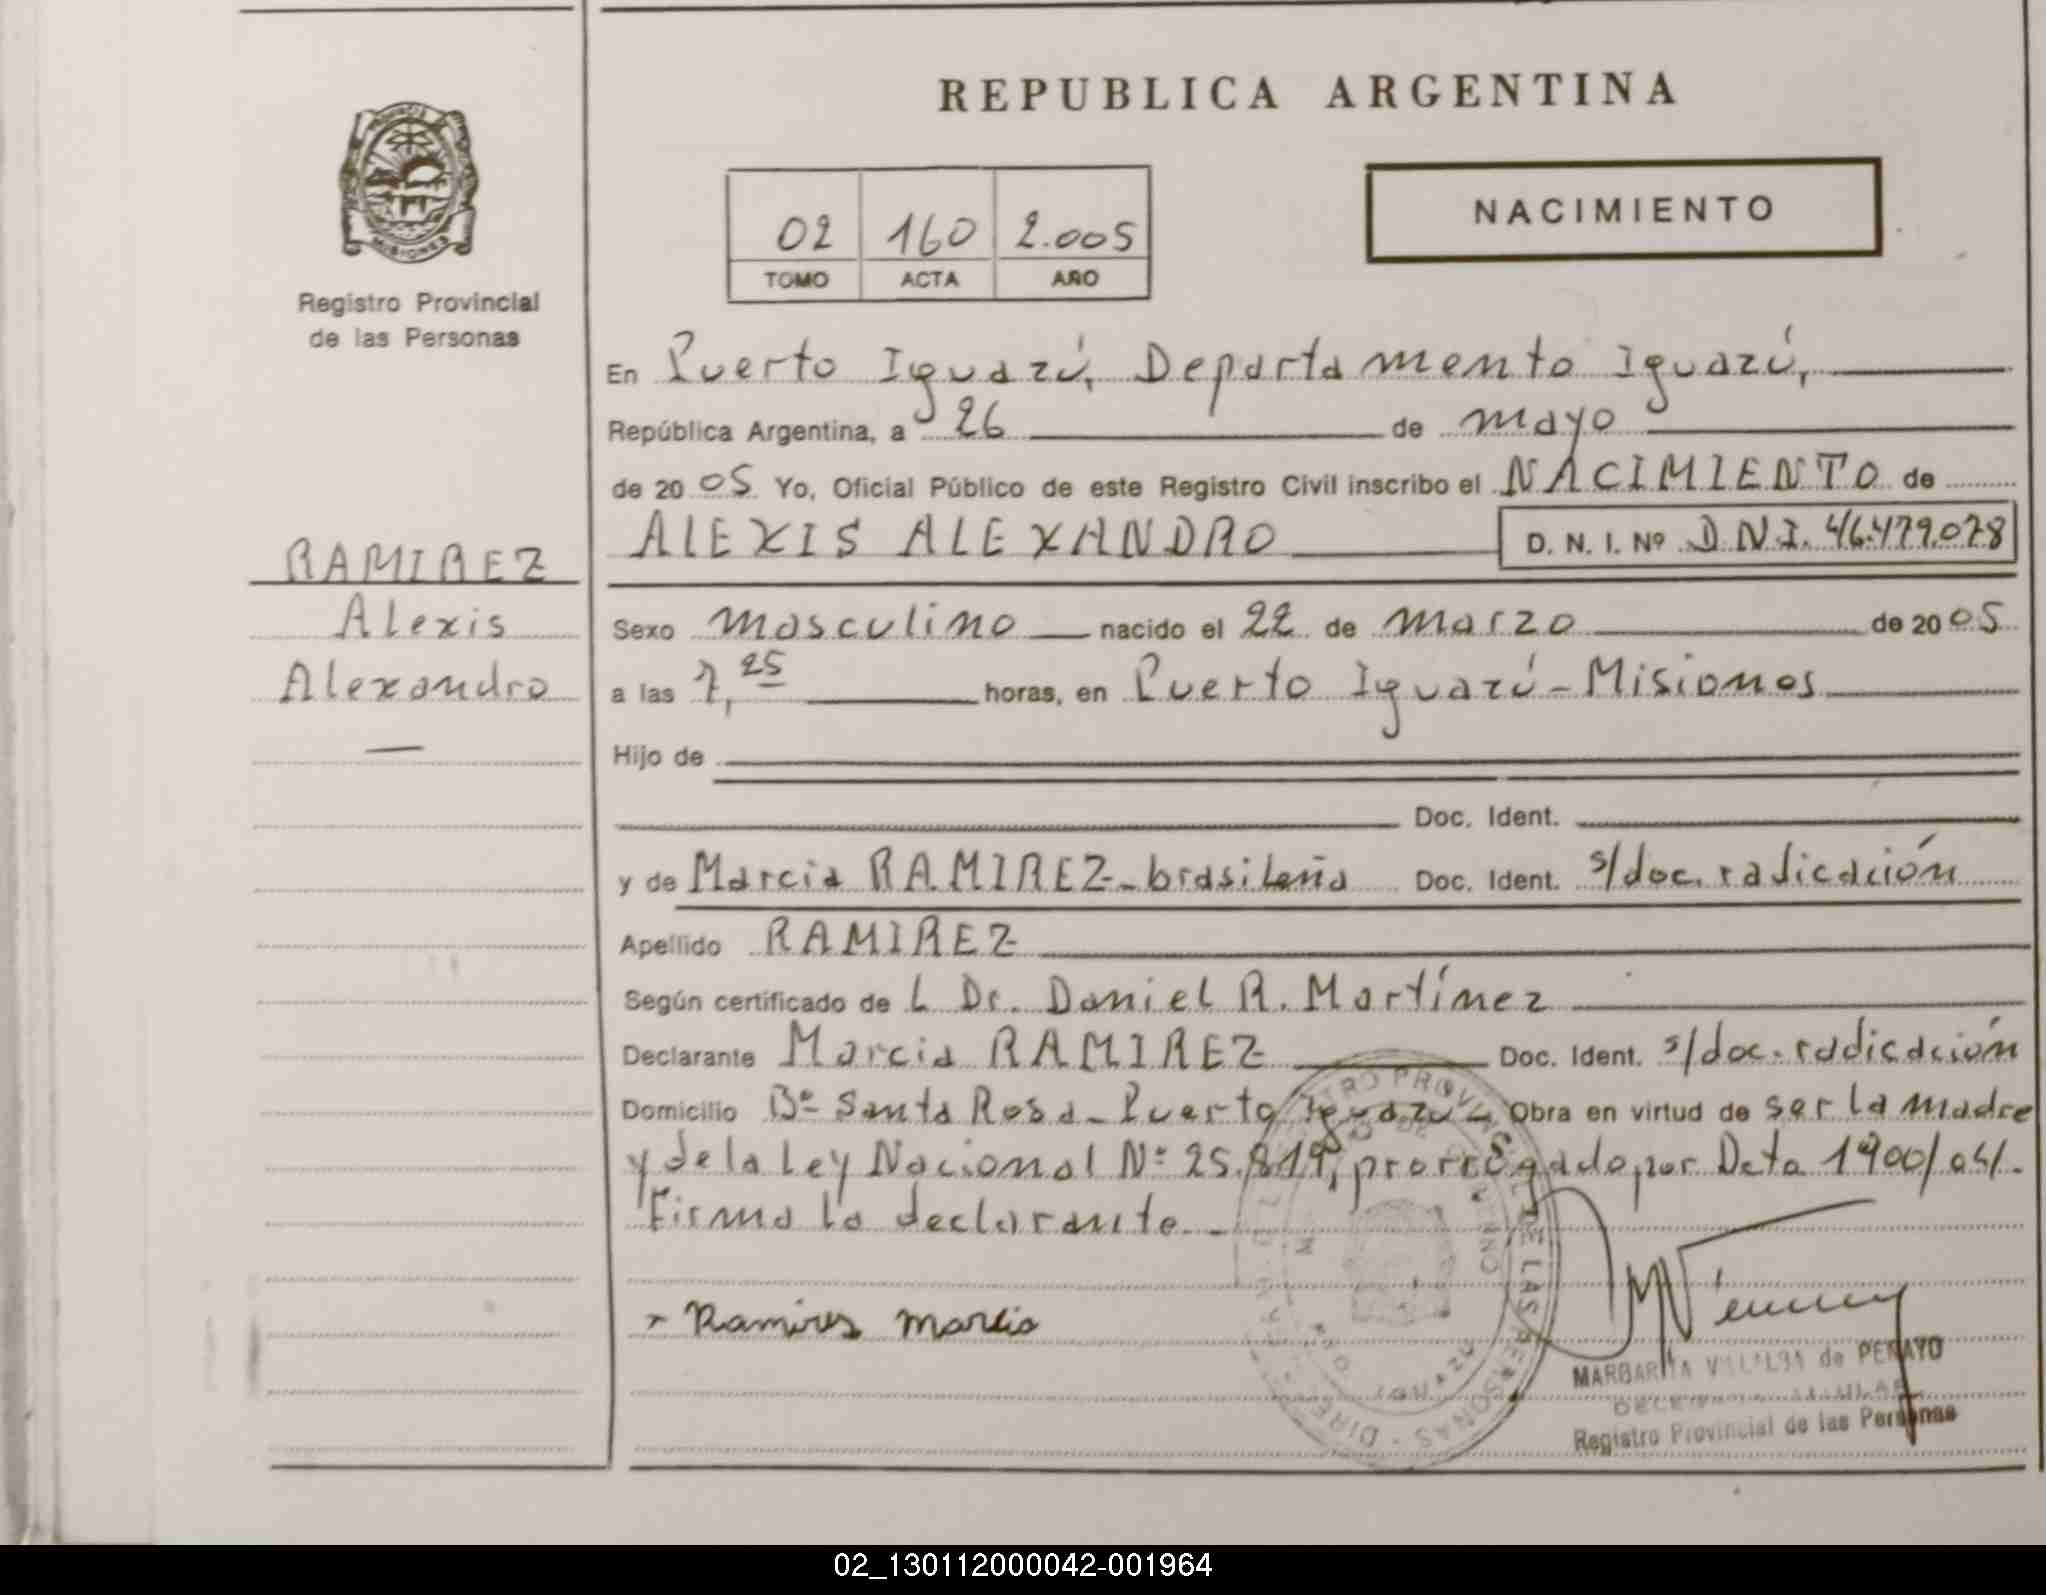 REPUBLICA ARGENTINA
PROVINCIA DE
MISIONES
Registro Provincial
de las Personas
02 160 2.005
TOMO ACTA AÑO
NACIMIENTO
En Puerto Iguazú, Departamento Iguazú,
República Argentina, a 26 de mayo
de 20 05 Yo, Oficial Público de este Registro Civil inscribo el NACIMIENTO de
RAMIREZ
Alexis
Alexandro
—
ALEXIS ALEXANDRO D. N. I. Nº D.N.I. 46.479.078
Sexo masculino nacido el 22 de marzo de 20 05
a las 7,25 horas, en Puerto Iguazú - Misiones
Hijo de
Doc. Ident.
y de Marcia RAMIREZ - brasileña Doc. Ident. s/doc. radicación
Apellido RAMIREZ
Según certificado de L Dr. Daniel R. Martínez
Declarante Marcia RAMIREZ Doc. Ident. s/doc. radicación
Domicilio Bº Santa Rosa - Puerto Iguazú - Obra en virtud de ser la madre
y de la Ley Nacional Nº 25.819, prorrogado por Dcto 1900/04/.
Firma la declarante. -
Ramires Marcia
REGISTRO PROVINCIAL DE LAS PERSONAS - DIRE
MARGARITA VILLALBA de PENAYO
Registro Provincial de las Personas
02_130112000042-001964